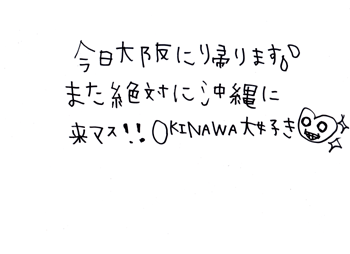 今日大阪に帰ります。
また絶対に沖縄に
来マス!! OKINAWA大好き